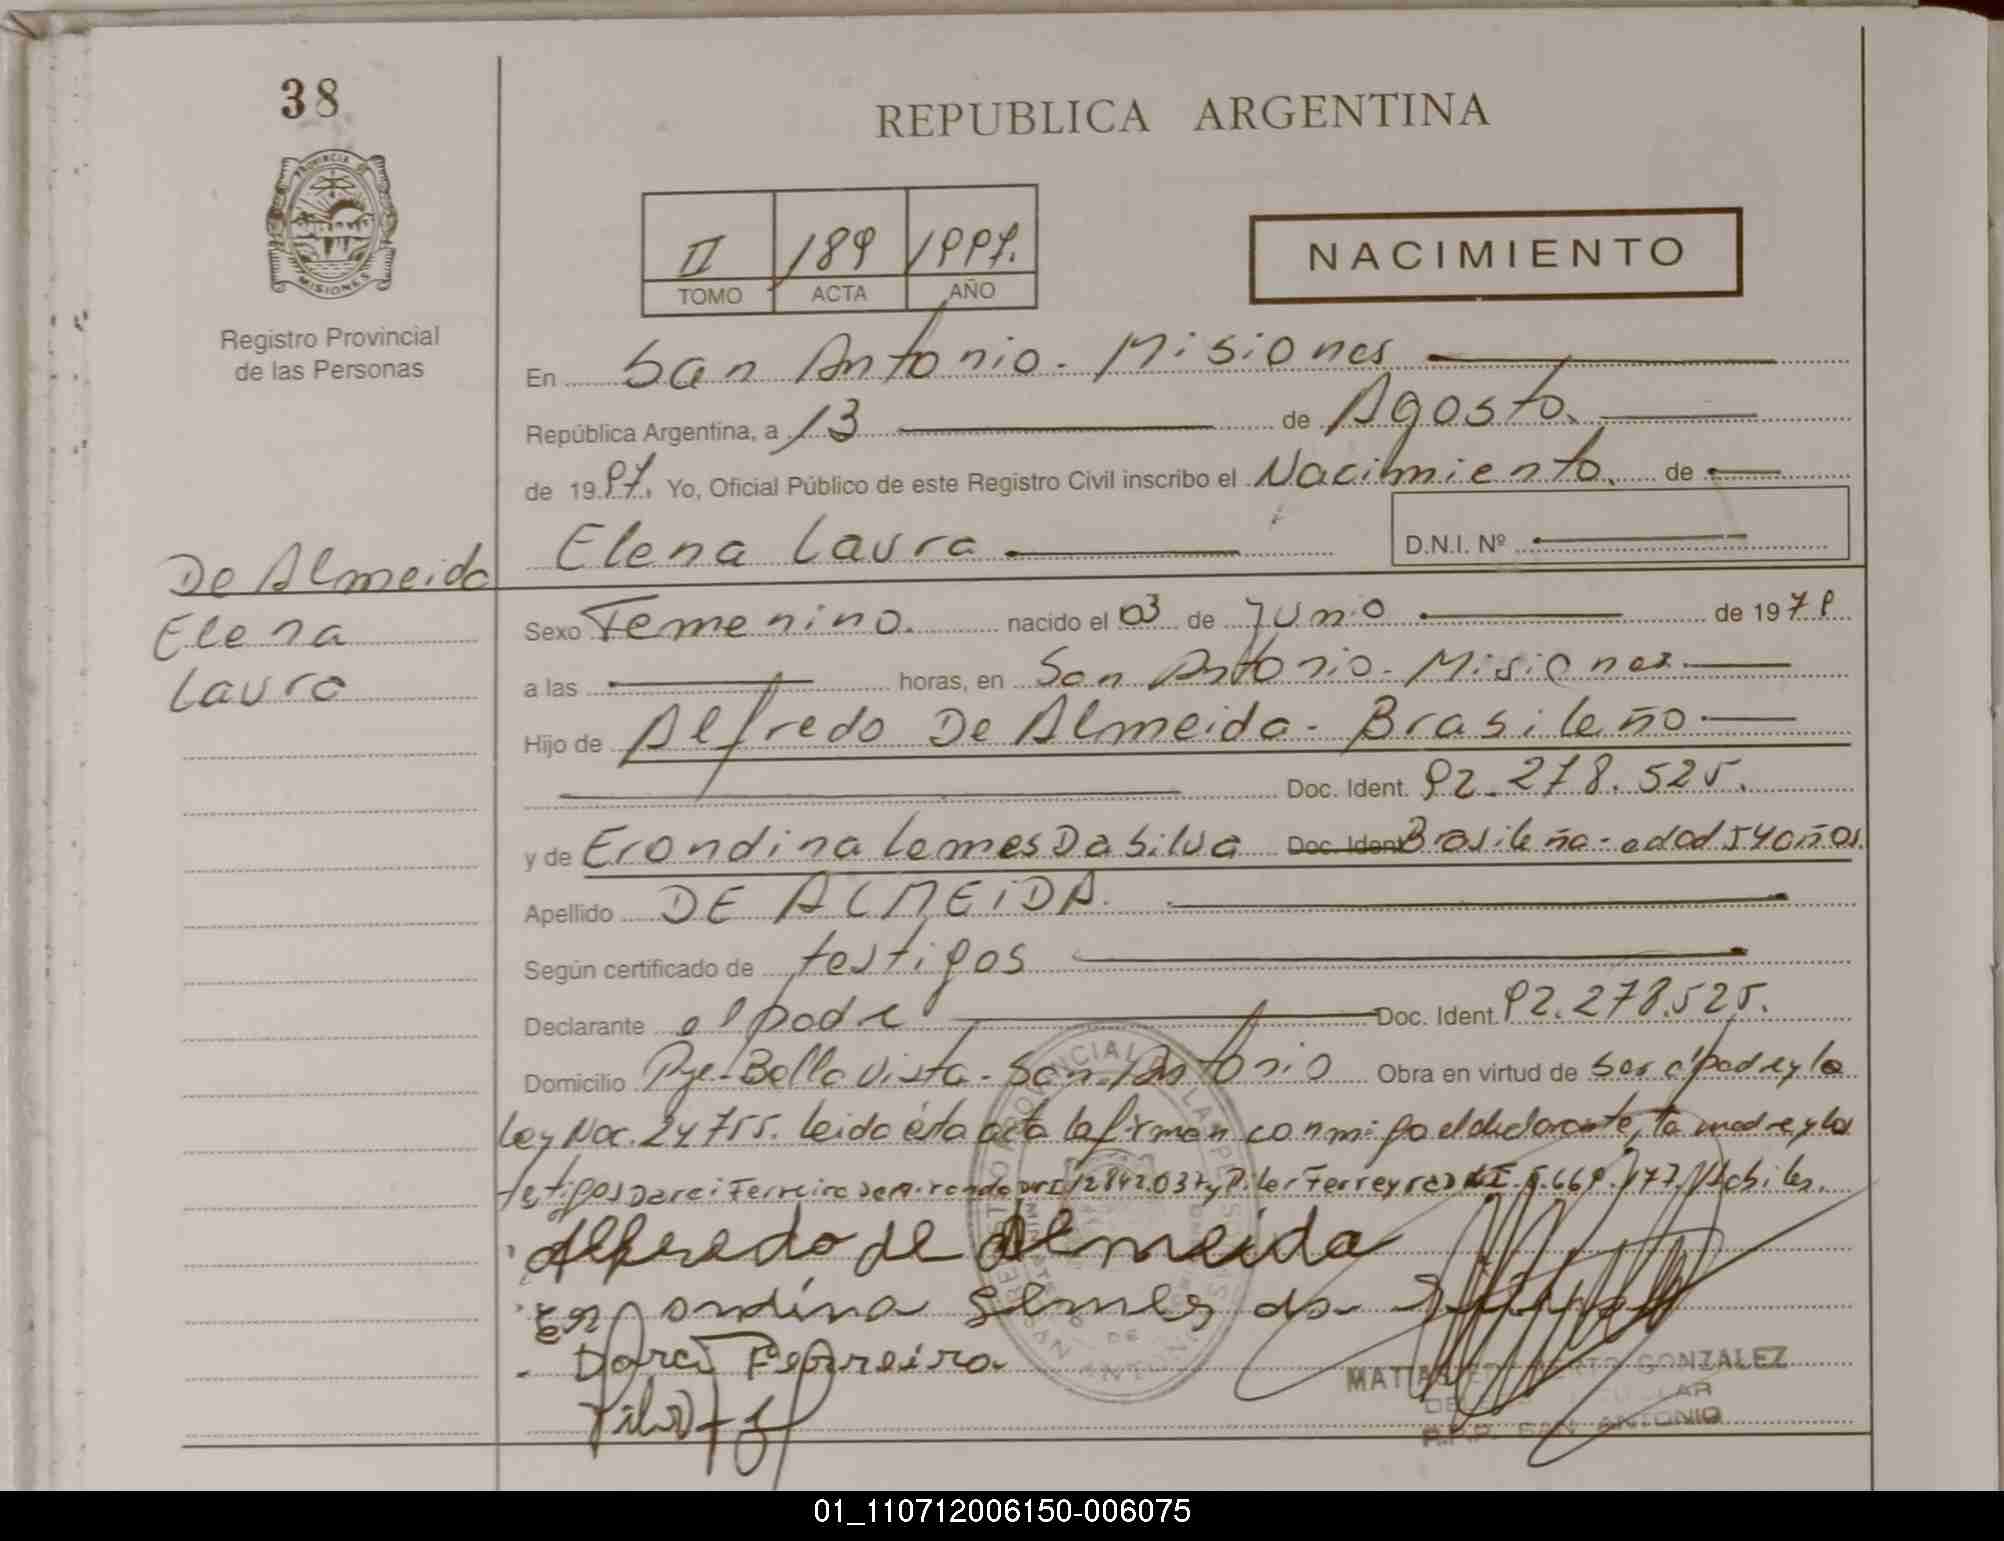 38
REPUBLICA ARGENTINA
PROVINCIA DE
MISIONES
Registro Provincial
de las Personas
II 189 1997.
TOMO ACTA AÑO
NACIMIENTO
En San Antonio - Misiones
República Argentina, a 13 de Agosto.
de 1997. Yo, Oficial Público de este Registro Civil inscribo el Nacimiento. de
Elena Laura D.N.I. Nº
De Almeida
Elena
Laura
Sexo Femenino. nacido el 03 de Junio de 1979
a las horas, en San Antonio - Misiones
Hijo de Alfredo De Almeida - Brasileño
Doc. Ident. 92.278.525.
y de Erondina Lemes Da Silva Doc. Ident Brasileña - edad 54 años.
Apellido DE ALMEIDA.
Según certificado de testigos
Declarante el padre Doc. Ident. 92.278.525.
Domicilio Pje. Bella Vista - San Antonio Obra en virtud de ser el padre y la
Ley Nac. 24755. leida ésta acta la firman conmigo el declarante, la madre y los
testigos Darci Ferreira de Miranda DNI 12842.037 y Piler Ferreyra 177. Habiles.
Alfredo de Almeida
Erondina Lemes da Silva
Darci Ferreira
MATIAS GONZALEZ
R.P.P. SAN ANTONIO
01_110712006150-006075